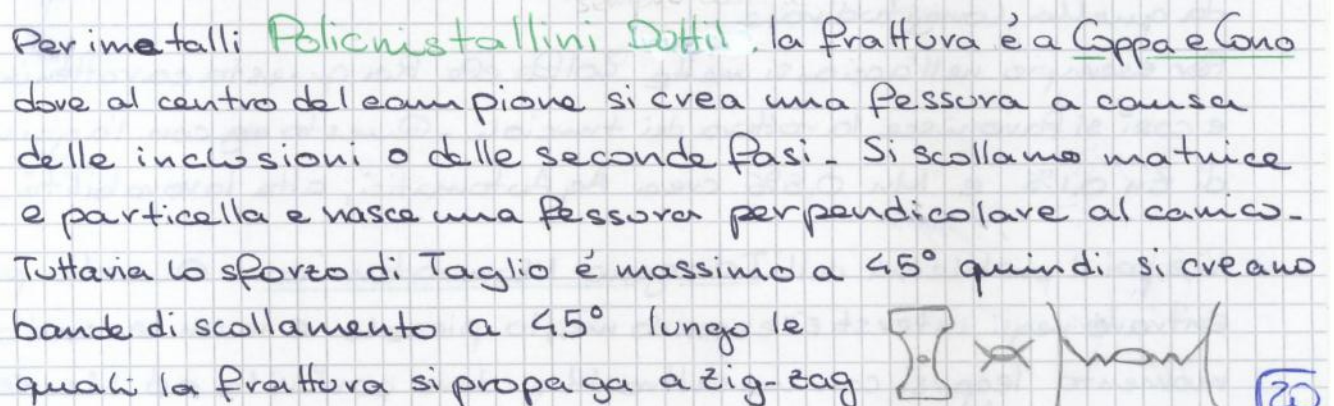 Per i metalli Policristallini Duttil. la frattura è a Coppa e Cono
dove al centro del campione si crea una fessura a causa
delle inclusioni o delle seconde fasi. Si scollano matrice
e particella e nasce una fessura perpendicolare al carico.
Tuttavia lo sforzo di Taglio é massimo a 45° quindi si creano
bande di scollamento a 45° lungo le
quali la frattura si propaga a zig-zag
20